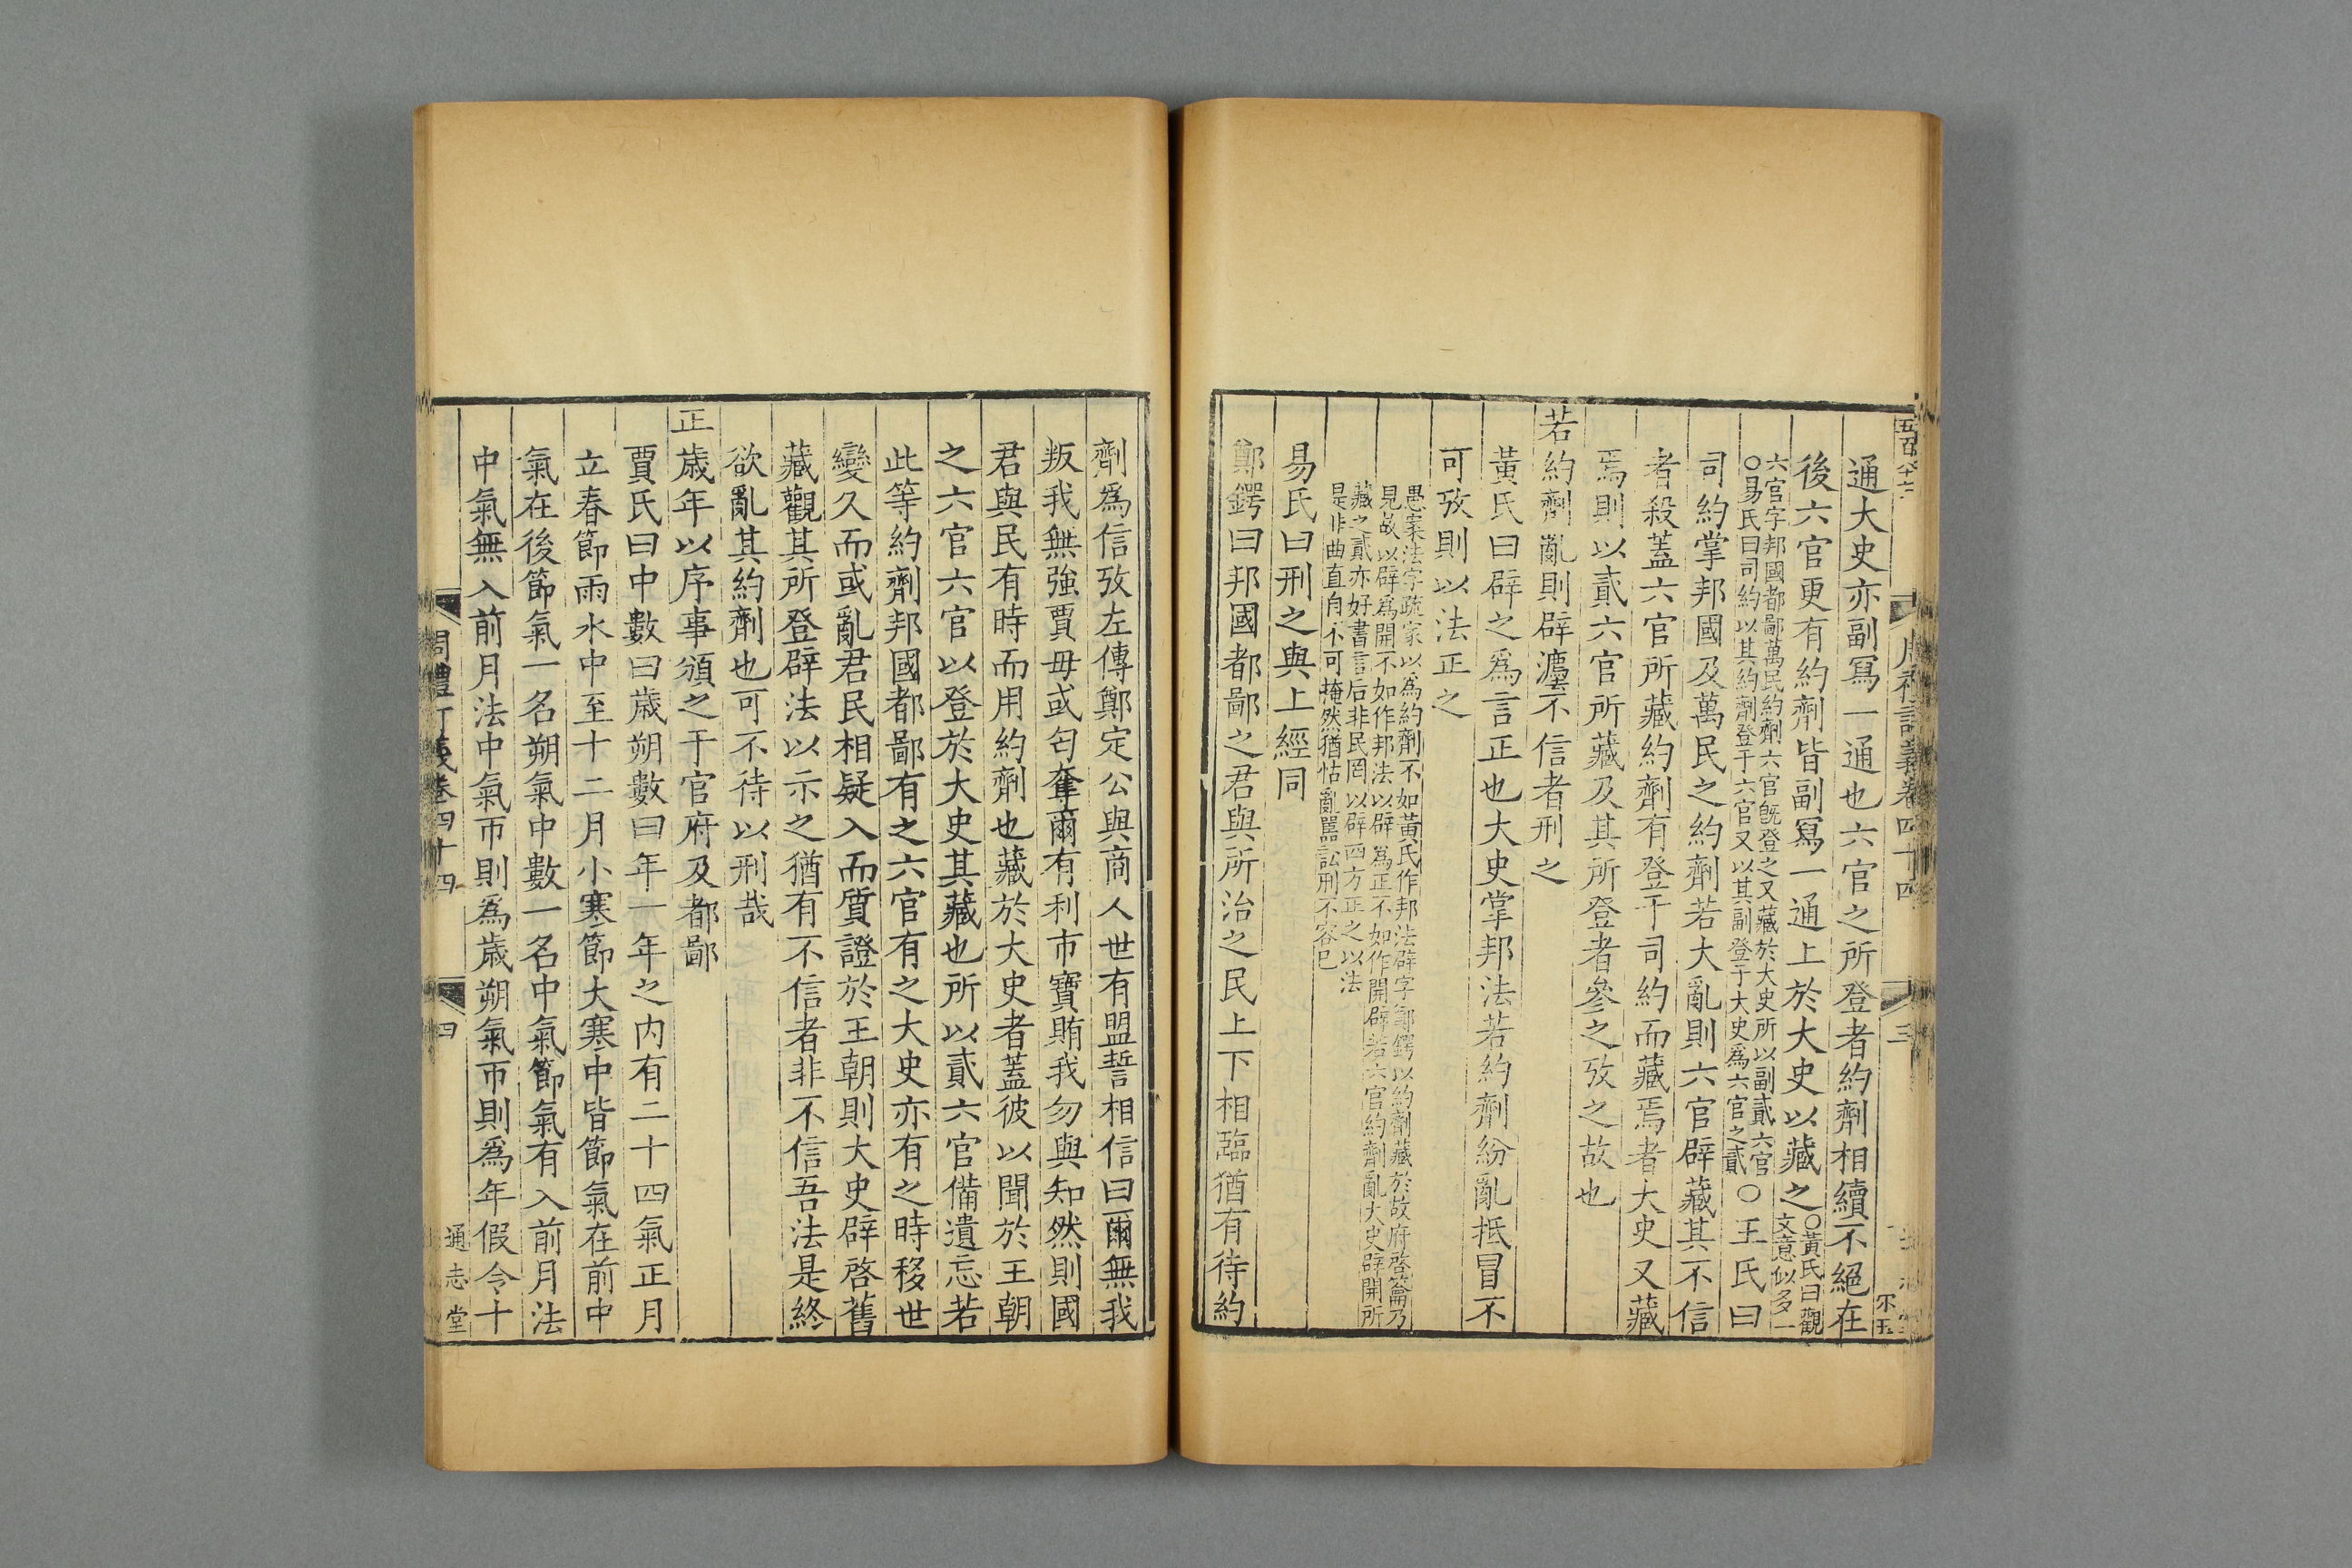 通大史亦副寫一通也六官之所登者約劑相續不絕在
後六官更有約劑皆副寫一通上於大史以藏之○黃氏曰觀
文意似多一
六官字邦國都鄙萬民約劑六官旣登之又藏於大史所以副貳六官
○易氏曰司約以其約劑登于六官又以其副登于大史爲六官之貳○王氏曰
司約掌邦國及萬民之約劑若大亂則六官辟藏其不信
者殺蓋六官所藏約劑有登于司約而藏焉者大史又藏
焉則以貳六官所藏及其所登者參之攷之故也
若約劑亂則辟灋不信者刑之
黃氏曰辟之爲言正也大史掌邦法若約劑紛亂抵冒不
可攷則以法正之
愚案法字疏家以為約劑不如黃氏作邦法辟字鄭鍔以約劑藏於故府啓籥乃
見故以辟為開不如作邦法以辟為正不如作開辟若六官約劑亂大史辟開所
藏之貳亦好書言后非民罔以辟四方正之以法
是非曲直自不可掩然猶怙亂嚚訟刑不容已
易氏曰刑之與上經同
鄭鍔曰邦國都鄙之君與所治之民上下相臨猶有待約
劑爲信攷左傳鄭定公與商人世有盟誓相信曰爾無我
叛我無強賈毋或匄奪爾有利市寶賄我勿與知然則國
君與民有時而用約劑也藏於大史者蓋彼以聞於王朝
之六官六官以登於大史其藏也所以貳六官備遺忘若
此等約劑邦國都鄙有之六官有之大史亦有之時移世
變久而或亂君民相疑入而質證於王朝則大史辟啓舊
藏觀其所登辟法以示之猶有不信者非不信吾法是終
欲亂其約劑也可不待以刑哉
正歲年以序事頒之于官府及都鄙
賈氏曰中數曰歲朔數曰年一年之内有二十四氣正月
立春節雨水中至十二月小寒節大寒中皆節氣在前中
氣在後節氣一名朔氣中數一名中氣節氣有入前月法
中氣無入前月法中氣帀則爲歲朔氣帀則爲年假令十
周禮訂義卷四十四
四
通志堂